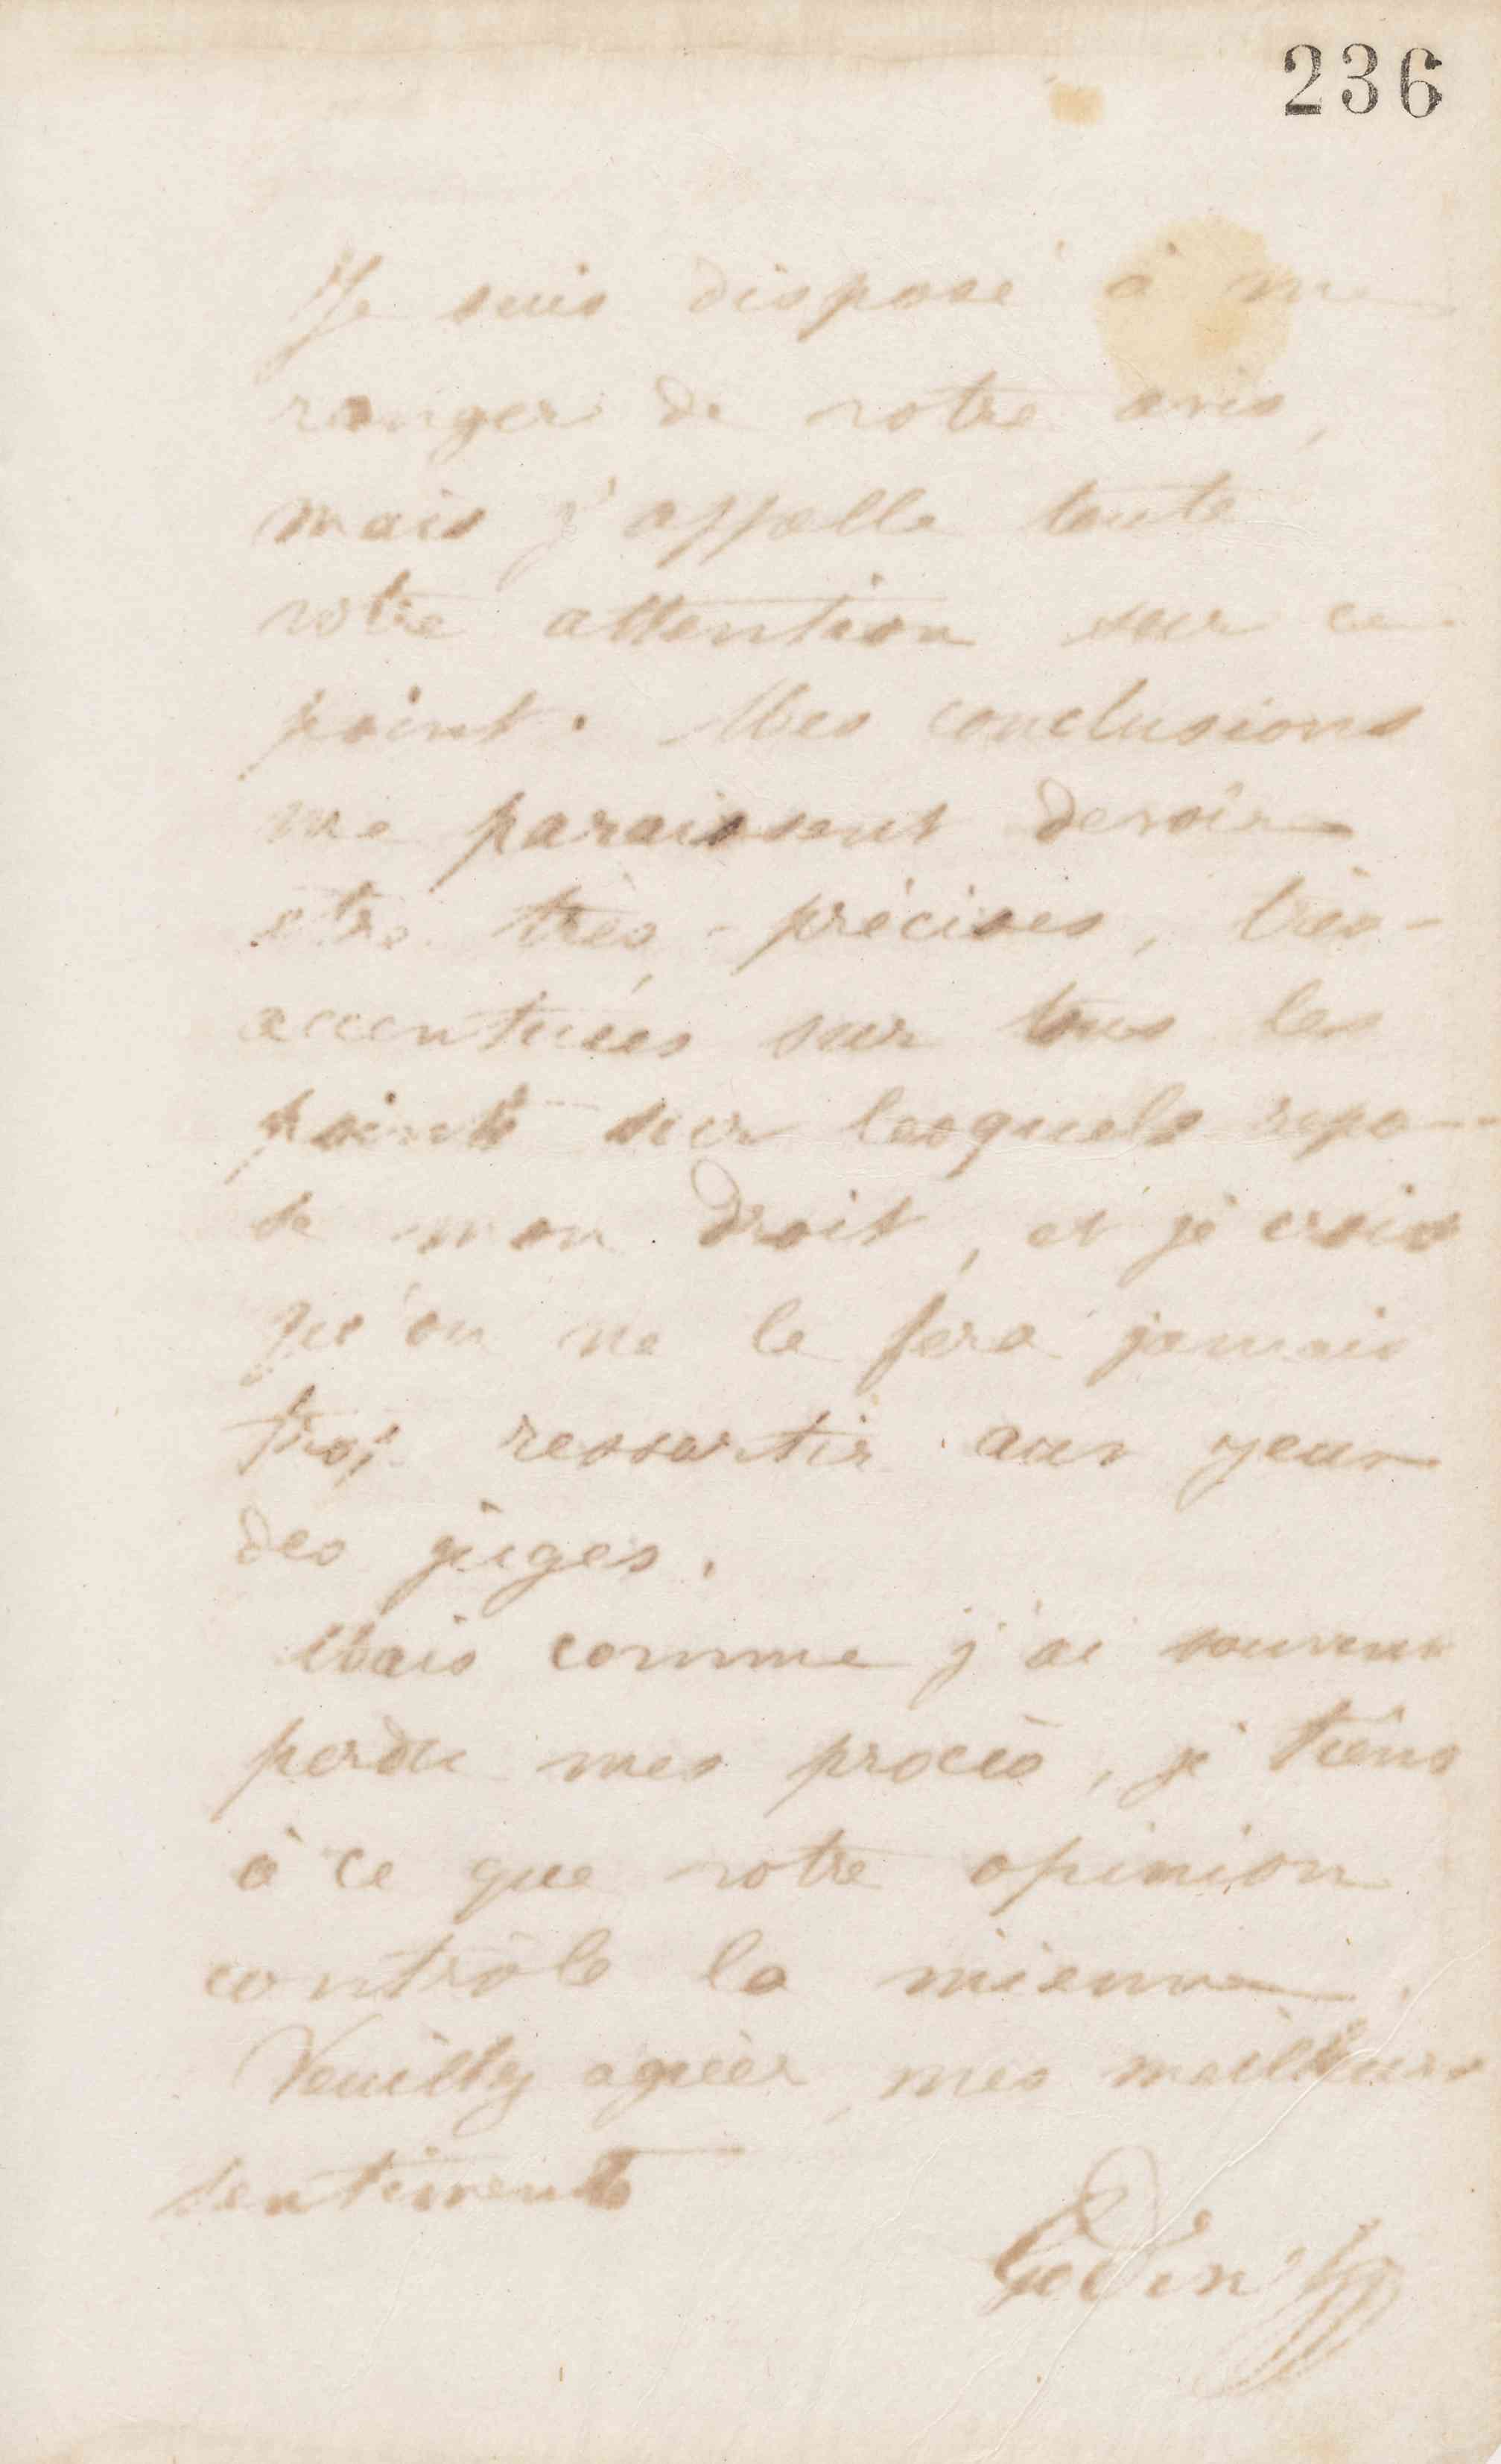 236
Je suis disposé à me
ranger de votre avis,
mais j'appelle toute
votre attention sur ce
point. Mes conclusions
me paraissent devoir
etre très-précises, très-
accentuées sur tous les
points sur lesquels repo-
se mon droit, et je crois
qu'on ne le fera jamais
trop ressortir aux yeux
des juges.
Mais comme j'ai souvent
perdu mes procès, je tiens
à ce que votre opinion
contrôle la mienne.
Veuillez agréer, mes meilleurs
sentiments
Godin